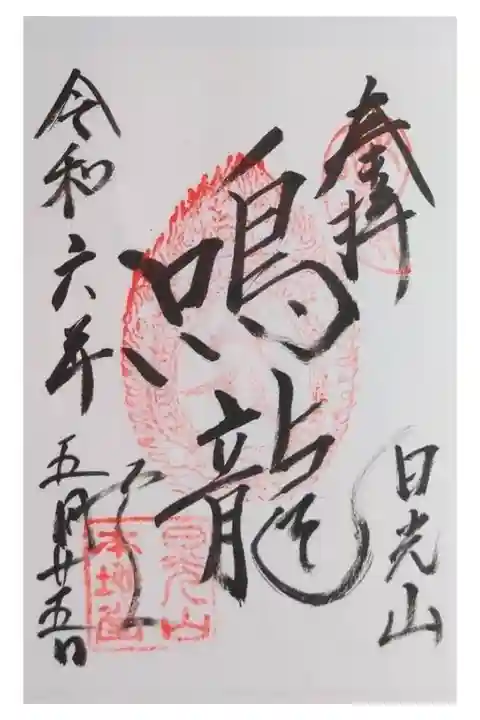 奉拝
日光山
鳴龍
令和六年五月廿五日